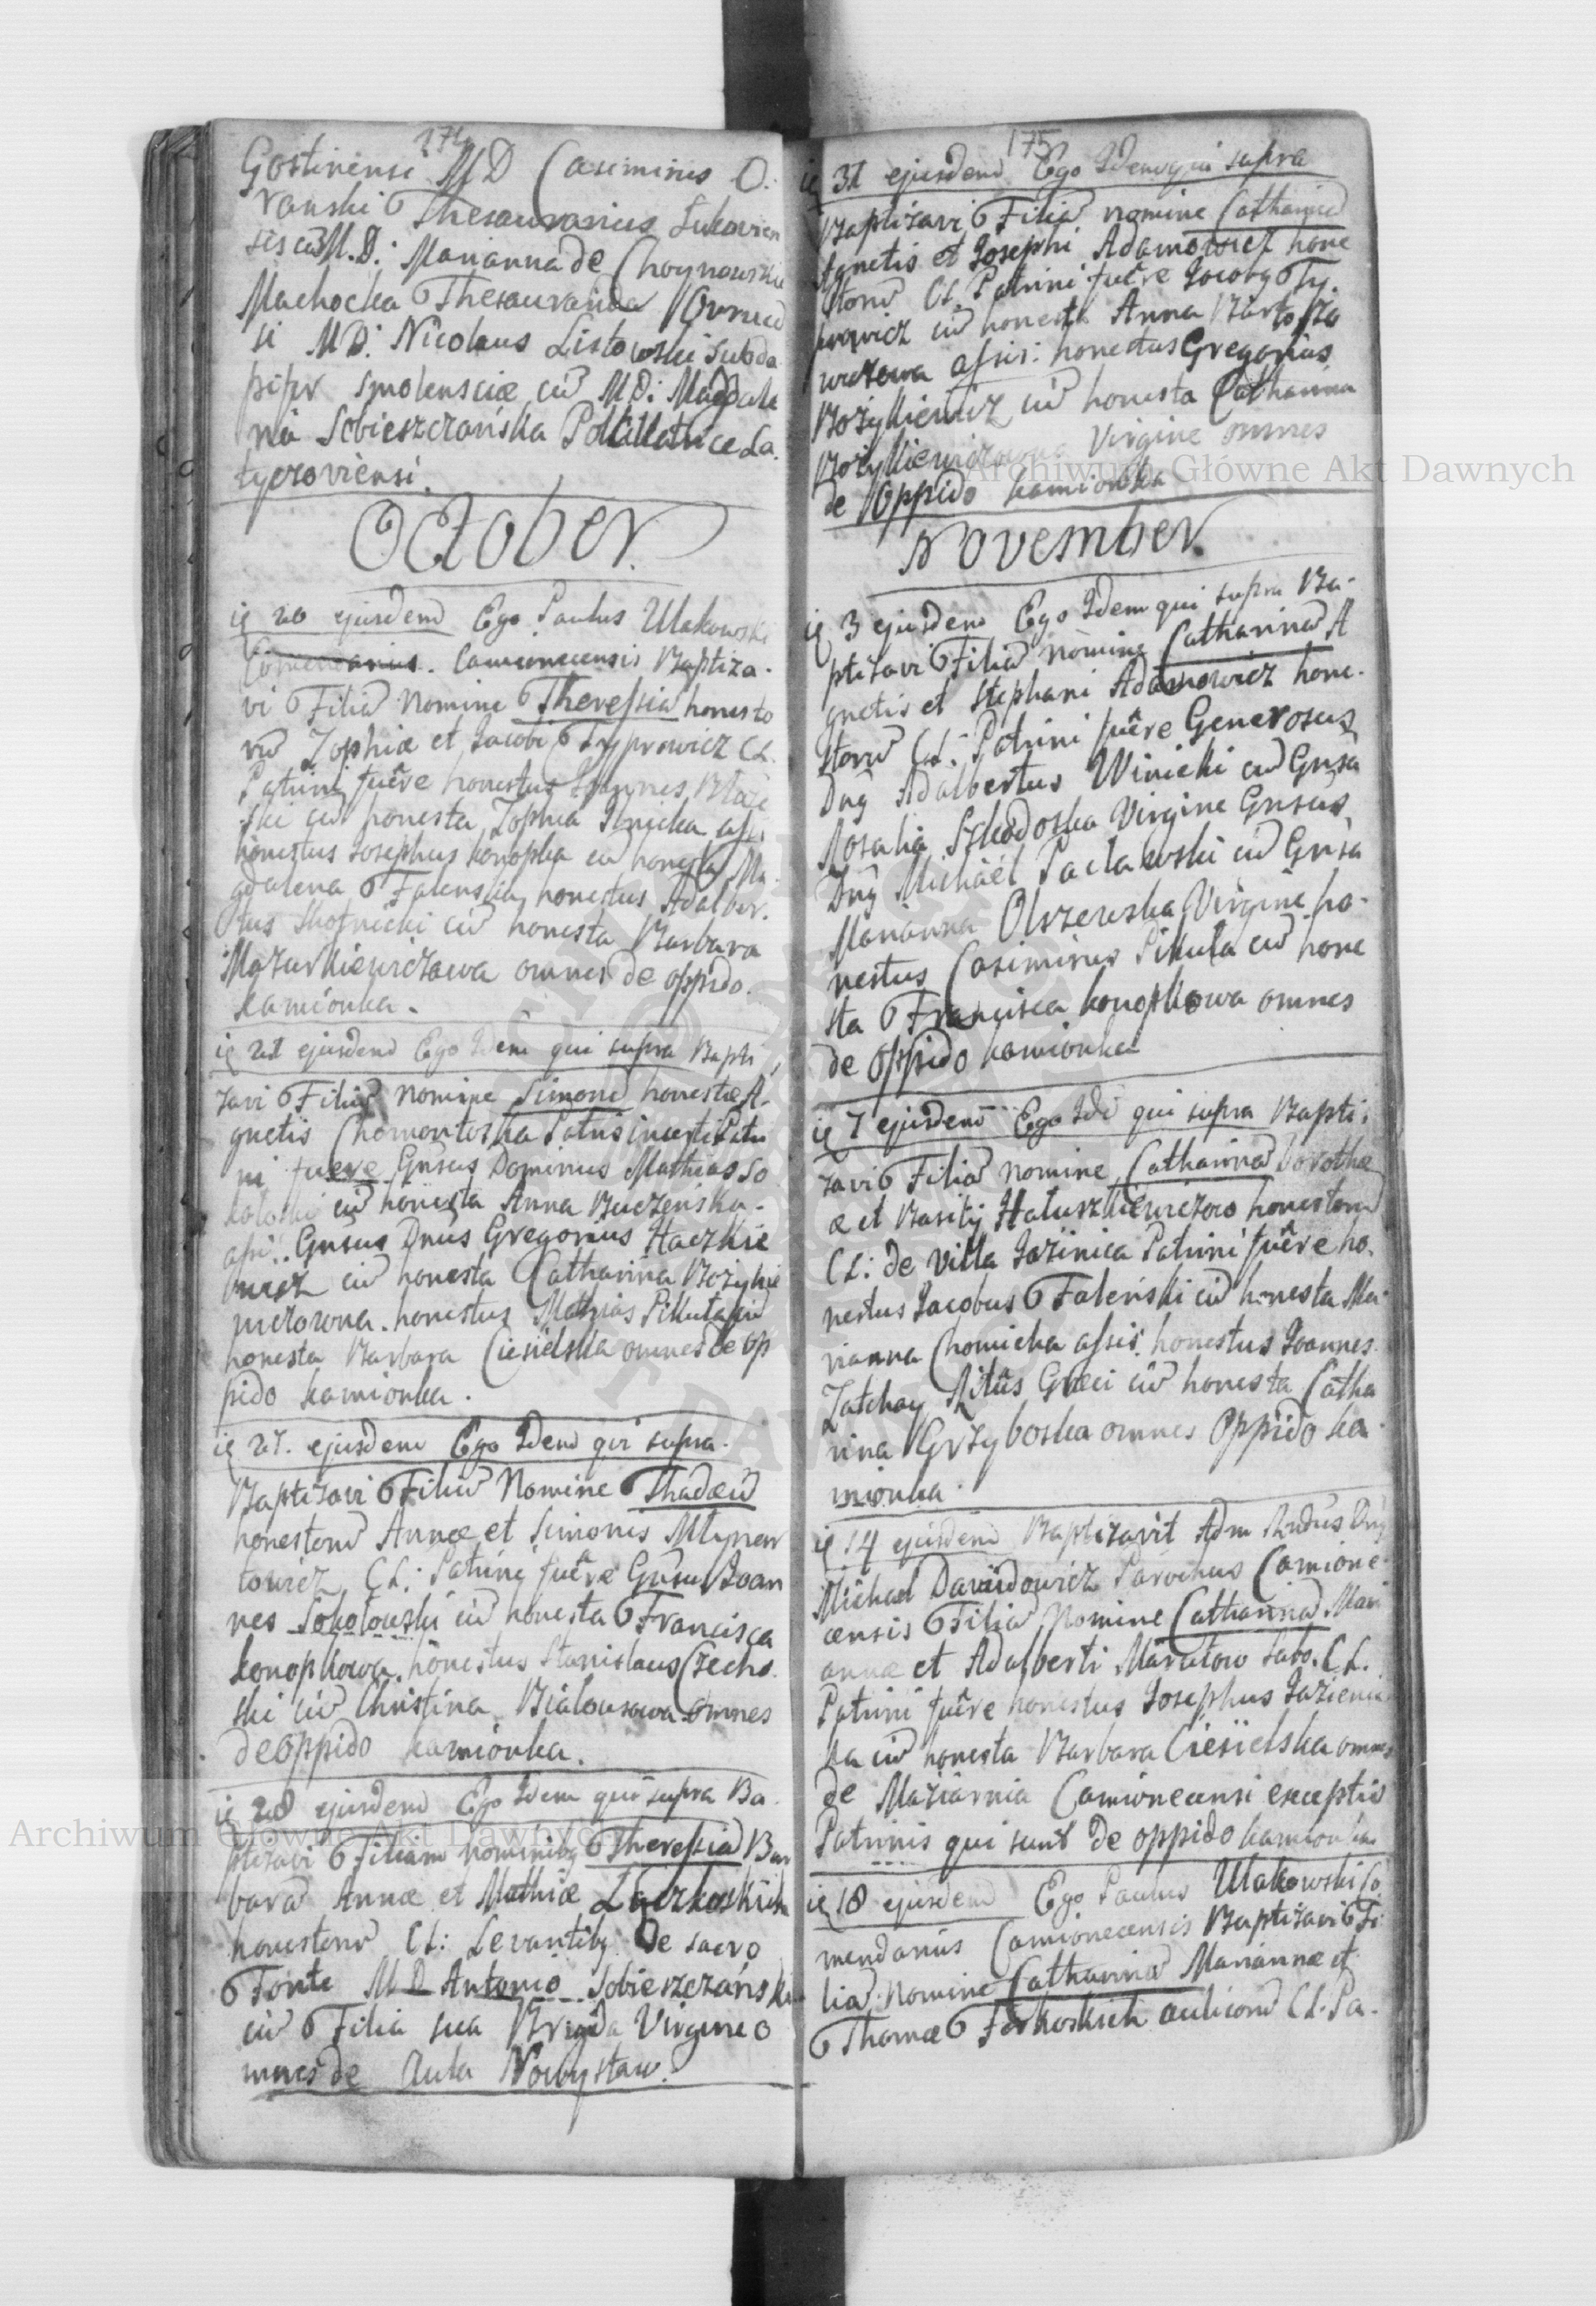 174
Gostinensi MD Casimirus O.
ranski Thesaurarius Lukovien
sis cũ M.D: Marianna de Choynowskie
Machocka Thesauraria Ovrucen
si MD: Nicolaus Listowski Subda
pifer Smolensciæ cũ MD: Magdale
na Sobieszczańska Pocillatrice La.
tyczoviensi.
October.
ię 20 ejusdem Ego Paulus Ulakowski
Comendarius. Camionecensis Baptiza.
vi Filiã Nomine Theressiã honesto
rũ Zophiæ et Jacobi Typrowicz C.L.
Patrini fuêre honestus Joannes Błaże
ski cũ honesta Zophia Ilnicka assi:
honestus Josephus Konopka cũ honesta Ma.
gdalena Falenska, honestus Adalber.
tus Skotnicki cũ honesta Barbara
Mazurkiewiczowa omnes de oppido.
Kamionka.
ię 21 ejusdem Ego Idem qui supra Bapti
zavi Filiũ Nomine Simonẽ honestæ A.
gnetis Chomentoska Patris incerti Patri
ni fuere Gnsus Dominus Mathias So
kołoski cũ honesta Anna Buczeńska.
assi: Gnsus Dnus Gregorius Haczkie
wicz cũ honesta Catharina Bożykie
wiczowna. honestus Mathias Pikuta cũ
honesta Barbara Ciesielska omnes de op
pido Kamionka.
ię 27. ejusdem Ego Idem qui supra.
Baptizavi Filiũ Nomine Thadæũ
honestorũ Annæ et Simonis Młynar
towicz C.L: Patrini fuêre Gnsus Joan
nes Sokołowski cũ honesta Francisca
Konopkowa. honestus Stanislaus Czecho.
ski cũ Christina Białousowa omnes
de oppido Kamionka.
ię 28 ejusdem Ego Idem qui supra Ba.
ptizavi Filiam nominibg Theressiã Bar
barã Annæ et Mathiæ Łyczkoskich
honestorũ C.L: Levantibg de sacro
Fonte M.D Antonio Sobieszczański
cũ Filia sua Brigida Virgine o
mnes de Aula Nowystaw.
175
ię 31 ejusdem Ego Idem qui supra
Baptizavi Filiã nomine Catharinã
Agnetis et Josephi Adamowicz hone
storũ C.L. Patrini fuêre Jacobg Ty.
prowicz cũ honesta Anna Bartosze
wiczowa assis: honestus Gregorius
Bożykiewicz cũ honesta Catharina
Bożykiewiczowna Virgine omnes
de Oppido Kamionka
November.
ię 3 ejusdem Ego Idem qui supra Ba.
ptizavi Filiã nomine Catharinã A
gnetis et Stephani Adamowicz hone.
storũ C.L: Patrini fuêre Generosus
Dng Adalbertus Winicki cũ Gnsa
Rosalia Szkodoska Virgine Gnsus
Dng Michaël Pacławski cũ Gnsa
Marianna Olszewska Virgine ho.
nestus Casimirus Pikuta cũ hone
sta Francisca Konopkowa omnes
de oppido Kamionka
ię 7 ejusdem Ego Idẽ qui supra Bapti.
zavi Filiã nomine Catharinã Dorothe
æ et Basilij Hałuszkiewiczow honestorũ
C.L: de Villa Jazinica Patrini fuêre ho.
nestus Jacobus Faleński cũ honesta Ma.
rianna Chomicka assis: honestus Joannes
Zatchay Ritûs Græci cũ honesta Catha
rina Grzyboska omnes Oppido Ka.
mionka.
ię 14 ejusdem Baptizavit Adm Rndus Dng
Michael Dawidowicz Parochus Camione
censis Filiã Nomine Catharinã Mari
annæ et Adalberti Maratow Labo. C.L.
Patrini fuêre honestus Josephus Jazienic
ka cũ honesta Barbara Ciesielska omnes
de Maziarnia Camionecensi exceptis
Patrinis qui sunt de oppido Kamionka
ię 18 ejusdem Ego Paulus Ulakowski Co
mendarius Camionecensis Baptizavi Fi
liã nomine Catharinã Mariannæ et
Thomæ Forkoskich aulicorũ C.L. Pa.
Archiwum Główne Akt Dawnych
Archiwum Główne Akt Dawnych